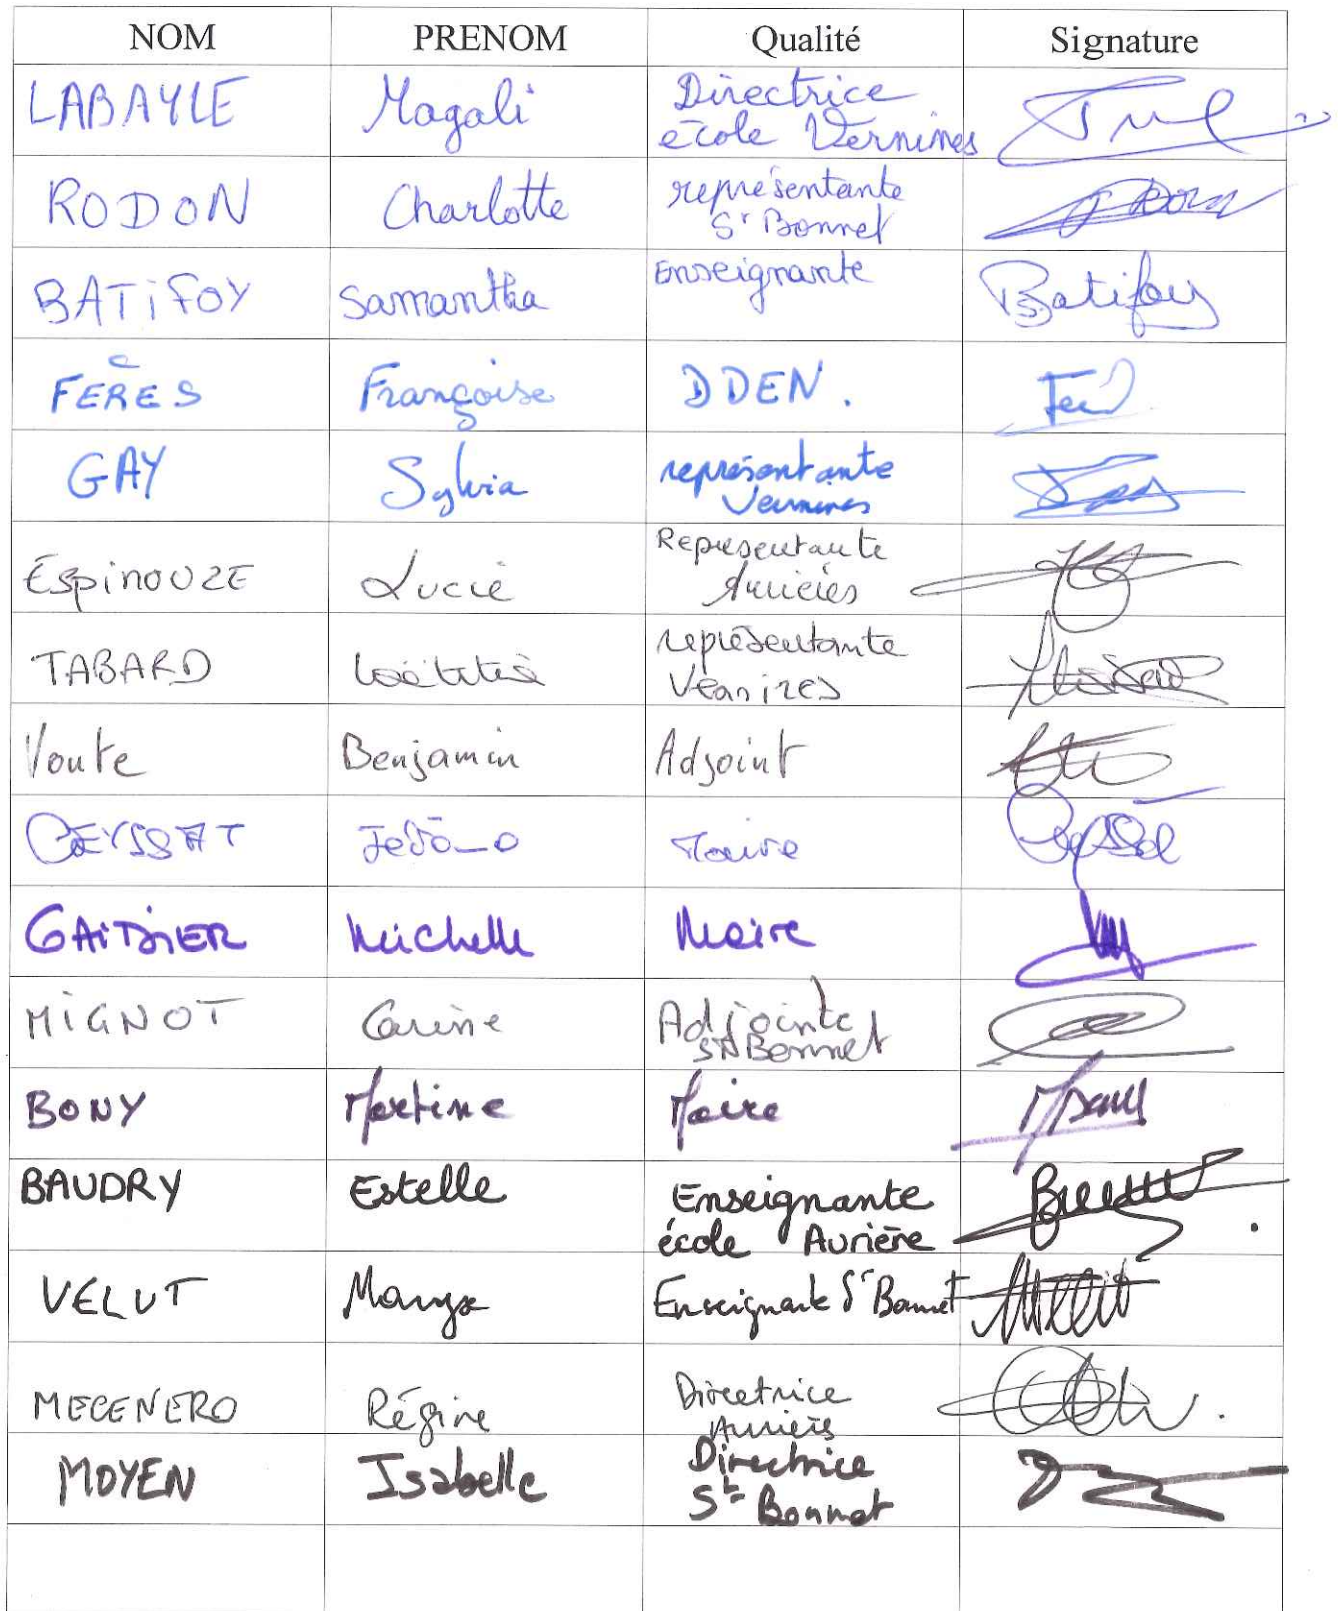 NOM PRENOM Qualité Signature
LABAYLE Magali Directrice
école Vernines
RODON Charlotte représentante
St Bonnet
BATIFOY Samantha Enseignante Batifoy
FERES Françoise DDEN.
GAY Sylvia représentante
Vernines
ESpinOUZE Lucie Representante
Aurières
TABARD Laëtitia représentante
Vernines
Voute Benjamin Adjoint
CEYSSAT Jérôme Maire
GATIGNIER Michelle Maire
MiGNOT Carine Adjointe
St Bonnet
BONY Martine Maire
BAUDRY Estelle Enseignante
école Aurière
VELUT Maryse Enseignante St Bonnet
MECENERO Régine Directrice
Aurières
MOYEN Isabelle Directrice
St Bonnet